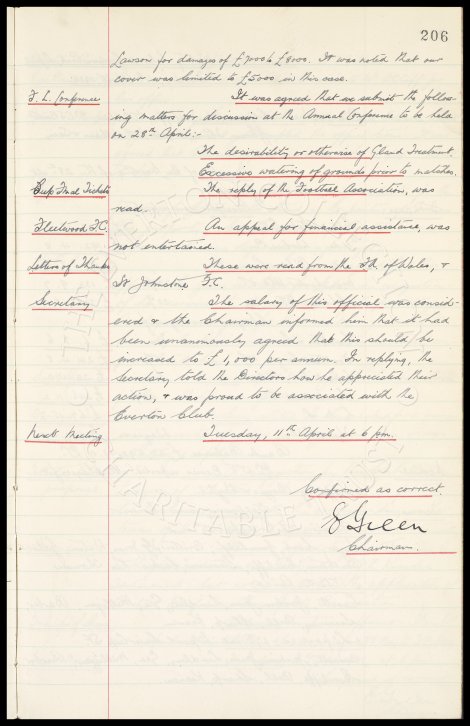 206
Lawson for damages of £7000 to £8000. It was noted that our
cover was limited to £5000 in this case.
F. L. Conference
It was agreed that we submit the follow-
ing matters for discussion at the Annual Conference to be held
on 28th April:-
The desirability or otherwise of Gland Treatment.
Excessive watering of grounds prior to matches.
Cup Final Tickets
The reply of the Football Association, was
read.
Fleetwood F.C.
An appeal for financial assistance, was
not entertained.
Letters of Thanks
These were read from the F.A. of Wales, &
St Johnstone F.C.
Secretary
The salary of this official was consid-
ered & the Chairman informed him that it had
been unanimously agreed that this should be
increased to £1,000 per annum. In replying, the
Secretary told the Directors how he appreciated their
action, & was proud to be associated with the
Everton Club.
Next Meeting
Tuesday, 11th April at 6 p.m.
Confirmed as correct.
E Green
Chairman.
THE EVERTON
CHARITABLE TRUST